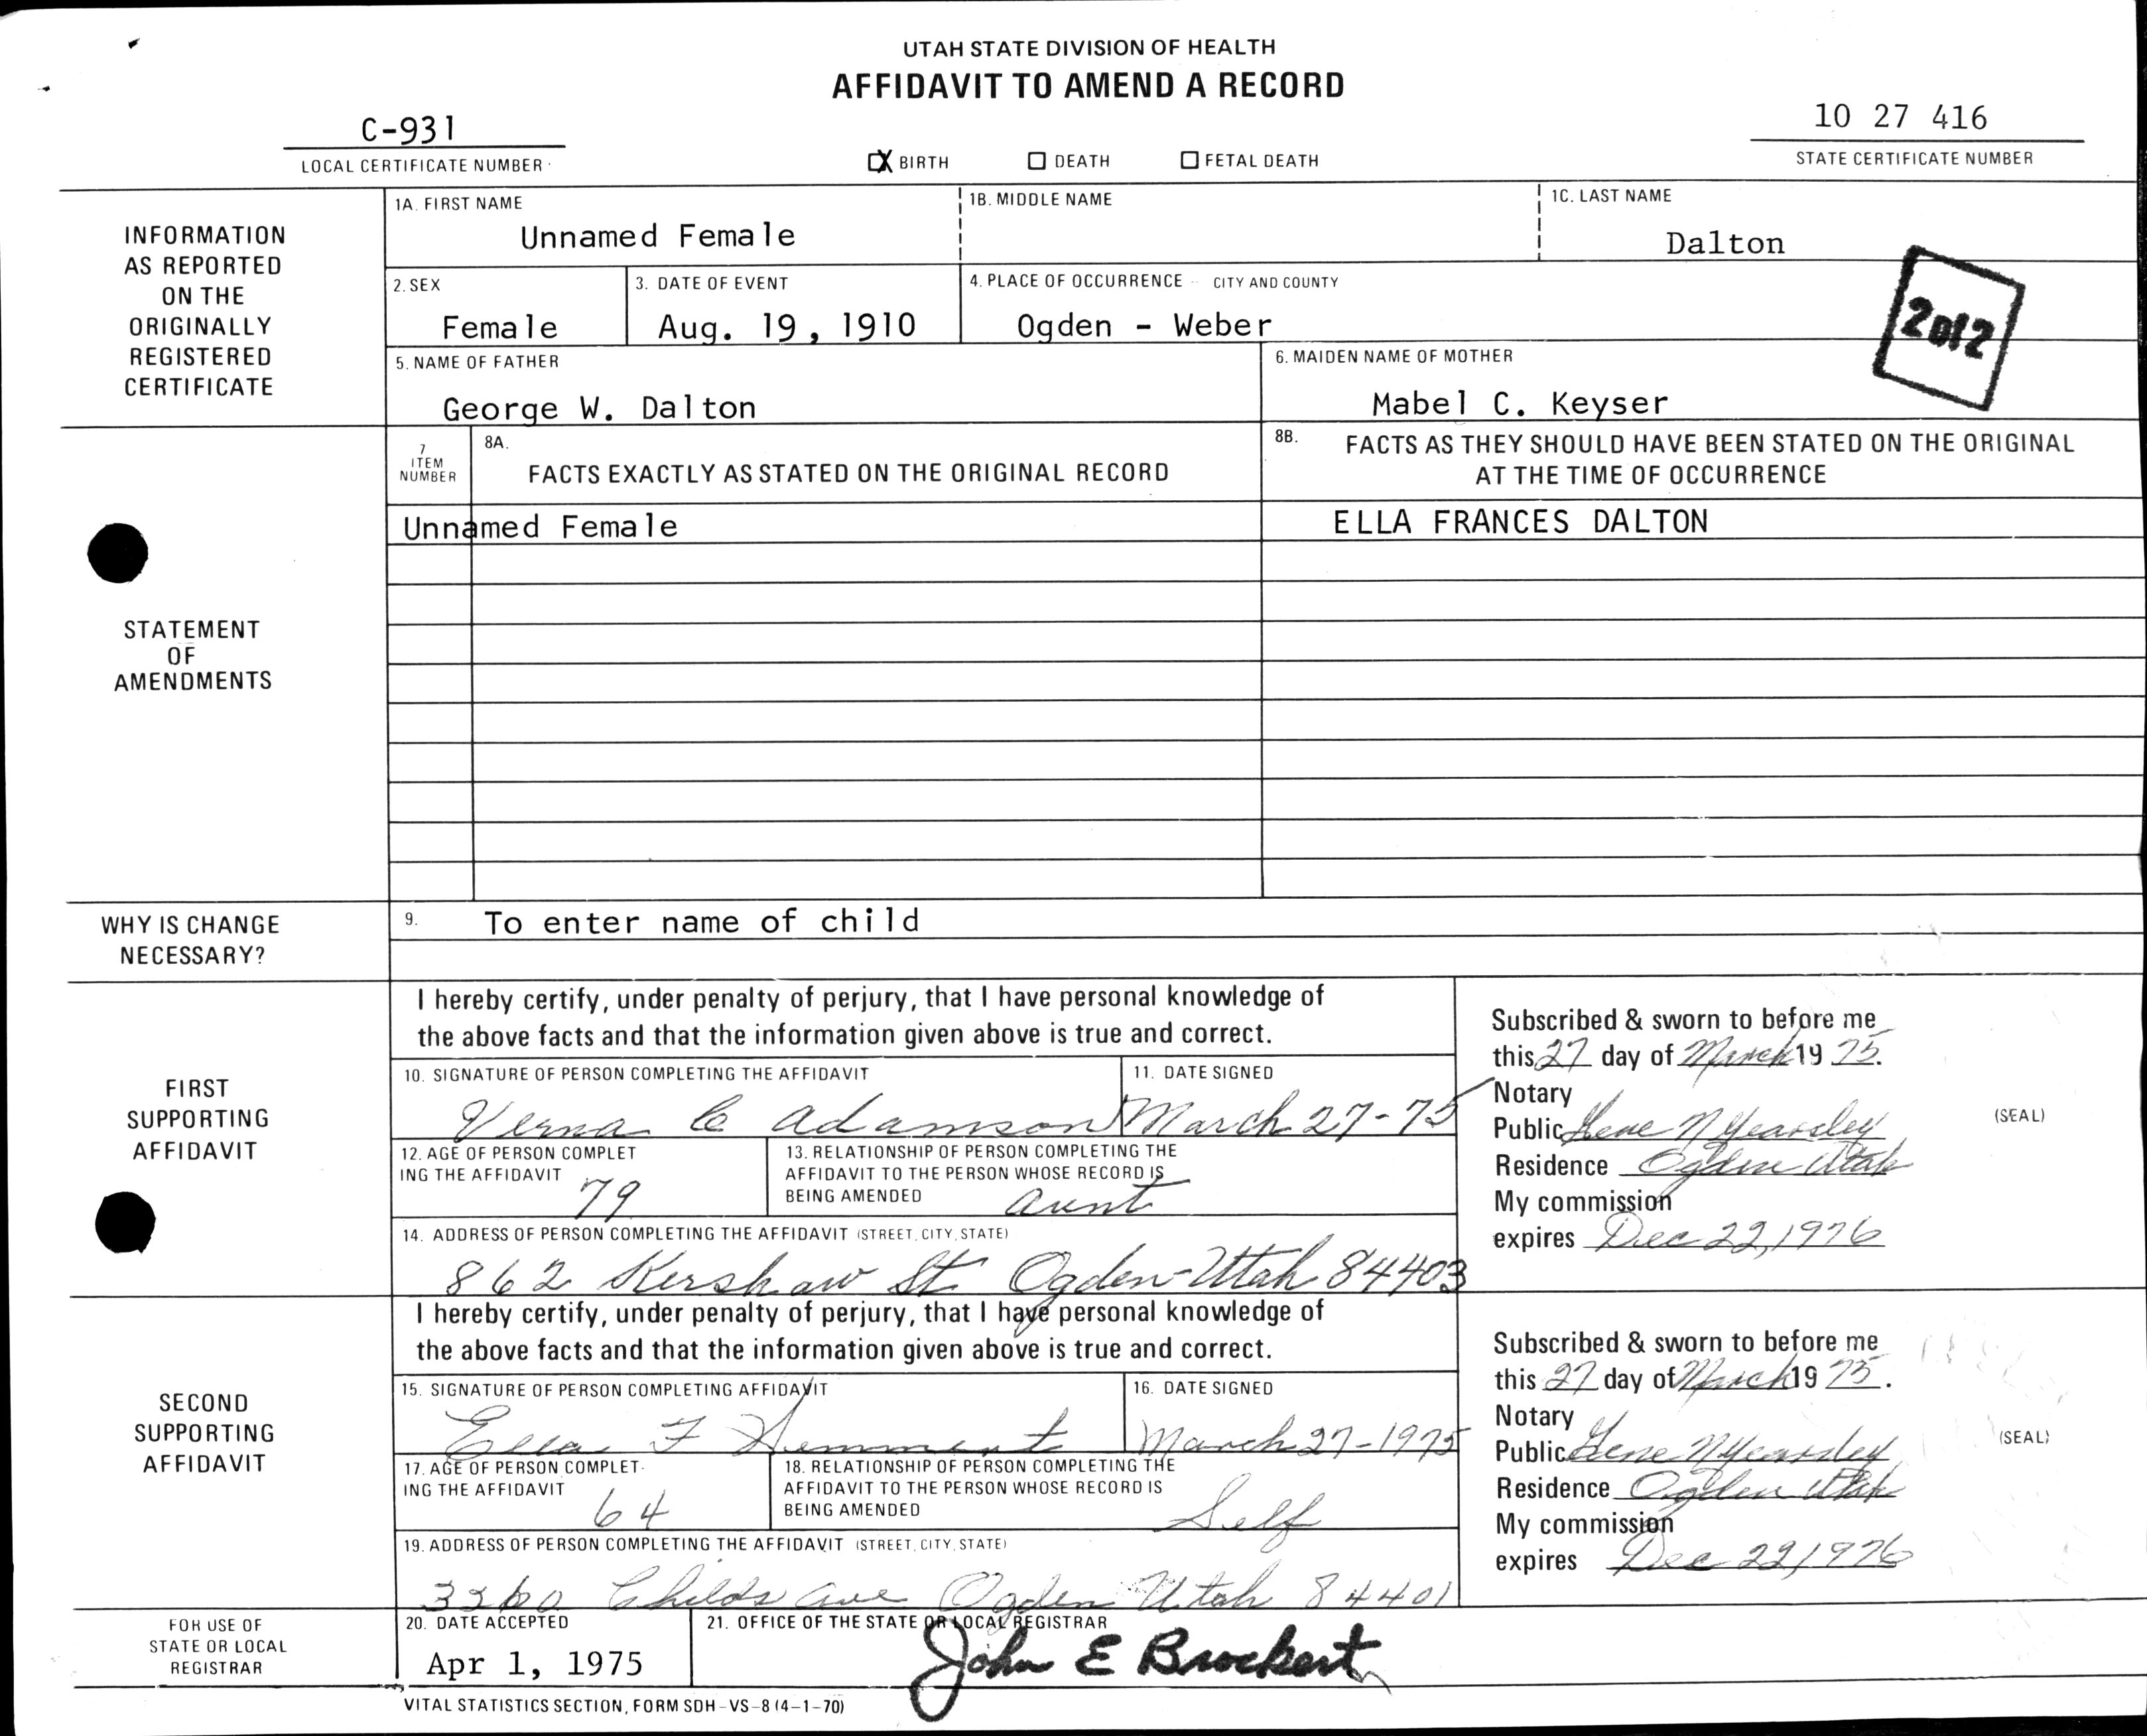 UTAH STATE DIVISION OF HEALTH
AFFIDAVIT TO AMEND A RECORD
C-931
LOCAL CERTIFICATE NUMBER
X BIRTH DEATH FETAL DEATH
10 27 416
STATE CERTIFICATE NUMBER
INFORMATION
AS REPORTED
ON THE
ORIGINALLY
REGISTERED
CERTIFICATE
1A. FIRST NAME
Unnamed Female
1B. MIDDLE NAME
1C. LAST NAME
Dalton
2. SEX
Female
3. DATE OF EVENT
Aug. 19, 1910
4. PLACE OF OCCURRENCE -- CITY AND COUNTY
Ogden - Weber
2012
5. NAME OF FATHER
George W. Dalton
6. MAIDEN NAME OF MOTHER
Mabel C. Keyser
STATEMENT
OF
AMENDMENTS
7
ITEM
NUMBER
8A.
FACTS EXACTLY AS STATED ON THE ORIGINAL RECORD
8B. FACTS AS THEY SHOULD HAVE BEEN STATED ON THE ORIGINAL
AT THE TIME OF OCCURRENCE
Unnamed Female
ELLA FRANCES DALTON
WHY IS CHANGE
NECESSARY?
9. To enter name of child
FIRST
SUPPORTING
AFFIDAVIT
I hereby certify, under penalty of perjury, that I have personal knowledge of
the above facts and that the information given above is true and correct.
10. SIGNATURE OF PERSON COMPLETING THE AFFIDAVIT
Verna C Adamson
11. DATE SIGNED
March 27-75
12. AGE OF PERSON COMPLET
ING THE AFFIDAVIT
79
13. RELATIONSHIP OF PERSON COMPLETING THE
AFFIDAVIT TO THE PERSON WHOSE RECORD IS
BEING AMENDED aunt
14. ADDRESS OF PERSON COMPLETING THE AFFIDAVIT (STREET, CITY, STATE)
862 Kershaw St Ogden-Utah 84403
Subscribed & sworn to before me
this 27 day of March 19 75.
Notary
Public Gene N Yearsley
Residence Ogden Utah
My commission
expires Dec 22, 1976
(SEAL)
SECOND
SUPPORTING
AFFIDAVIT
I hereby certify, under penalty of perjury, that I have personal knowledge of
the above facts and that the information given above is true and correct.
15. SIGNATURE OF PERSON COMPLETING AFFIDAVIT
Ella F Hemmert
16. DATE SIGNED
March 27-1975
17. AGE OF PERSON COMPLET-
ING THE AFFIDAVIT
64
18. RELATIONSHIP OF PERSON COMPLETING THE
AFFIDAVIT TO THE PERSON WHOSE RECORD IS
BEING AMENDED Self
19. ADDRESS OF PERSON COMPLETING THE AFFIDAVIT (STREET, CITY, STATE)
3360 Childs ave Ogden Utah 84401
Subscribed & sworn to before me
this 27 day of March 19 75.
Notary
Public Gene N Yearsley
Residence Ogden Utah
My commission
expires Dec 22, 1976
(SEAL)
FOR USE OF
STATE OR LOCAL
REGISTRAR
20. DATE ACCEPTED
Apr 1, 1975
21. OFFICE OF THE STATE OR LOCAL REGISTRAR
John E Brockert
VITAL STATISTICS SECTION, FORM SDH-VS-8 (4-1-70)